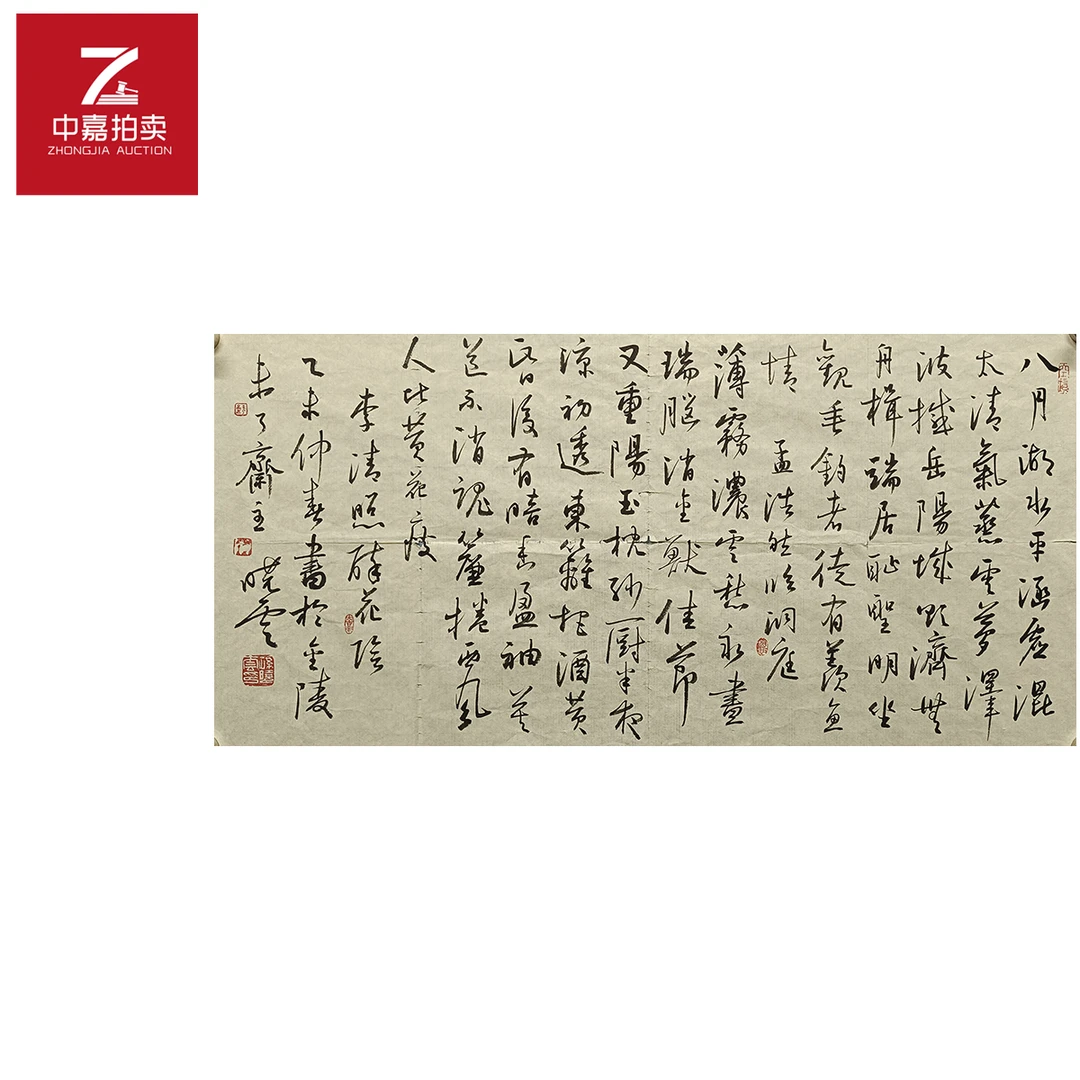 中嘉拍卖
ZHONGJIA AUCTION
八月湖水平涵虛混
太清氣蒸雲夢澤
波撼岳陽城欲濟無
舟楫端居恥聖明坐
觀垂釣者徒有羨魚
情 孟浩然臨洞庭
薄霧濃雲愁永晝
瑞腦消金獸佳節
又重陽玉枕紗廚半夜
涼初透東籬把酒黃
昏後有暗香盈袖莫
道不消魂簾捲西風
人比黃花瘦
李清照醉花陰
乙未仲春書於金陵
未了齋主 曉雲